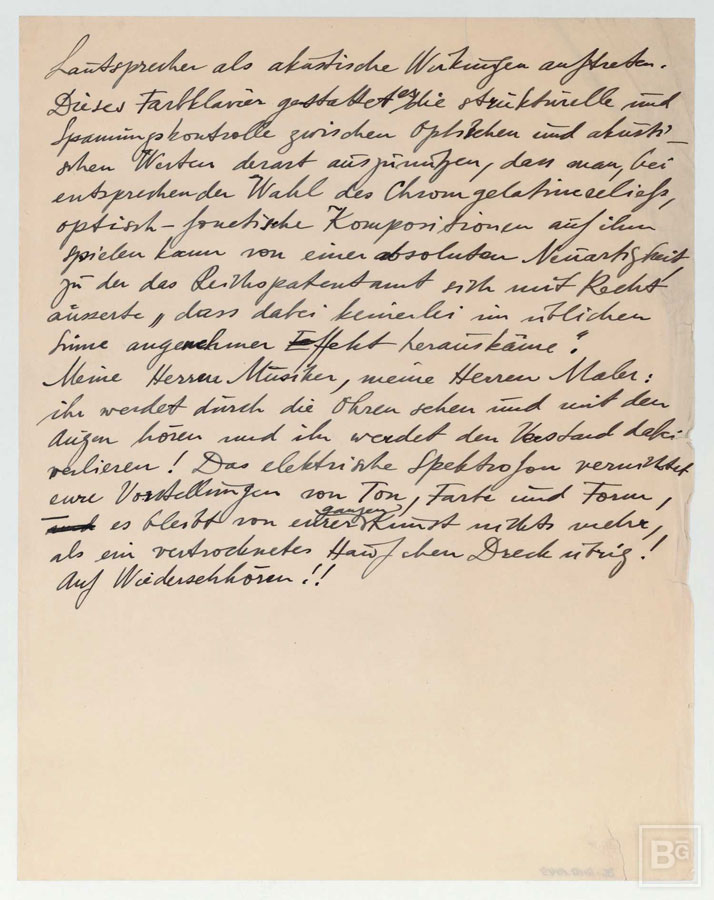 Lautsprecher als akustische Wirkungen auftreten.
Dieses Farbklavier gestattet es, die strukturelle und
Spannungskontrolle zwischen optischen und akusti-
schen Werten derart auszunützen, dass man, bei
entsprechender Wahl des Chromgelatinereliefs,
optisch-fonetische Kompositionen auf ihm
spielen kann von einer absoluten Neuartigkeit,
zu der das Reichspatentamt sich mit Recht
äusserte „dass dabei keinerlei im üblichen
Sinne angenehmer Effekt herauskäme".
Meine Herren Musiker, meine Herren Maler:
ihr werdet durch die Ohren sehen und mit den
Augen hören und ihr werdet den Verstand dabei
verlieren! Das elektrische Spektrofon vernichtet
eure Vorstellungen von Ton, Farbe und Form,
und es bleibt von eurer ganzen Kunst nichts mehr,
als ein vertrocknetes Häufchen Dreck übrig!
Auf Wiedersehhören!!
BG